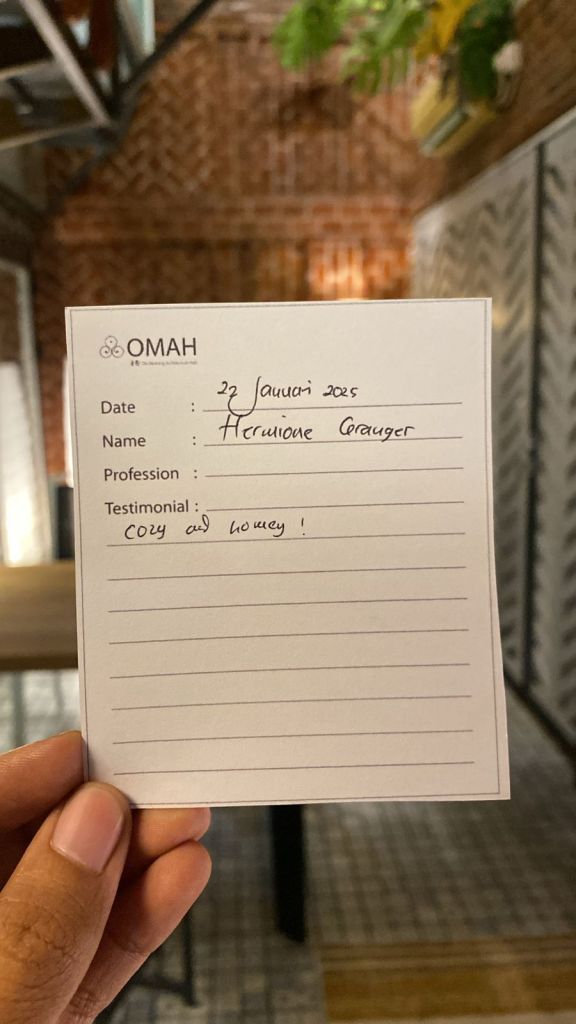 OMAH
Date : 22 Januari 2025
Name : Hermione Granger
Profession :
Testimonial :
cozy and homey !